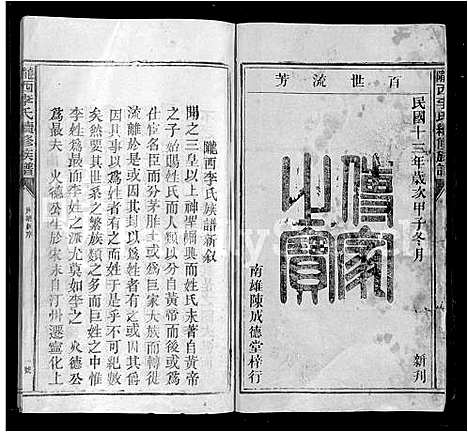 隴西李氏續修族譜
百世流芳
民國十三年歲次甲子冬月
新刊
傳家之寶
南雄陳成德堂梓行
隴西李氏族譜新叙
聞之三皇以上神聖繼興而姓氏未著自黃帝
始賜姓氏而人類以分自黃帝而後或為
仕宦名臣而分茅胙土或為巨家大族而
流離於是或有因其官而姓者有或因其
因其字以為姓者而姓于是乎不可紀數
矣然要其世系之繁族類之多而巨姓之中惟
李姓為最而李姓之源尤莫如李之 火德公
為最夫 火德公生於宋末自汀州遷寧化上
隴西李氏續修族譜
一號